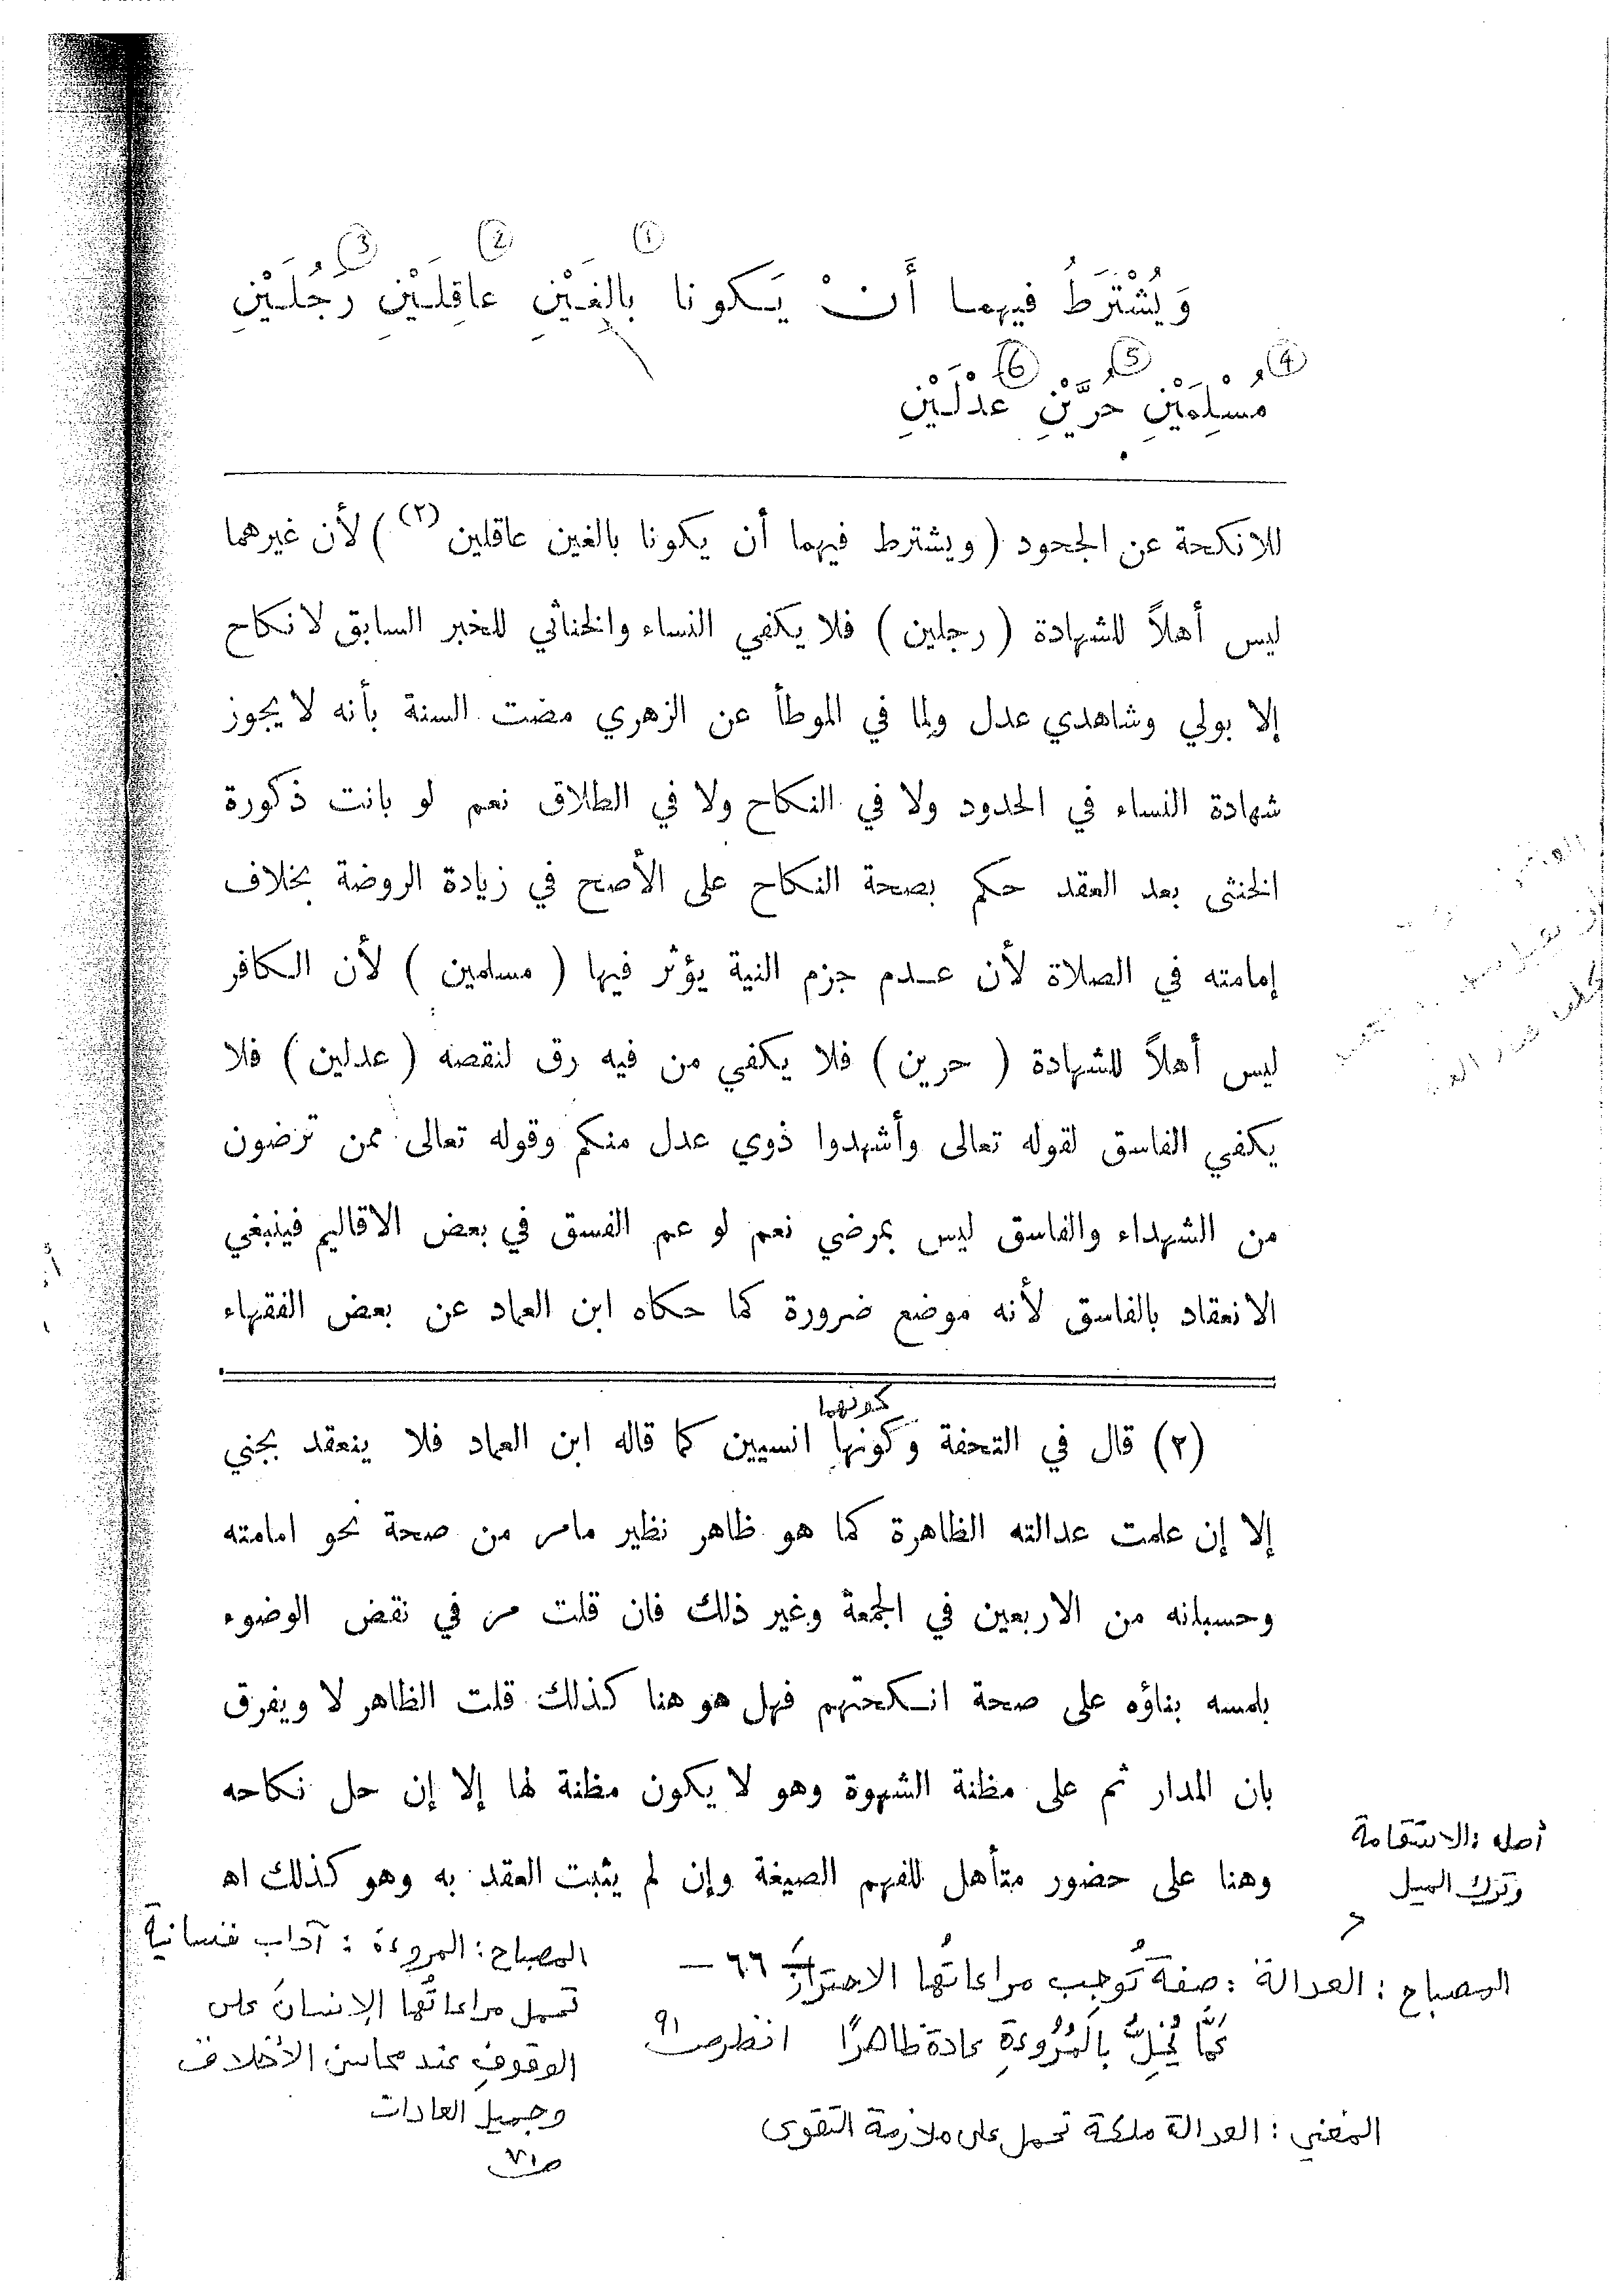 1 2 3
وَيُشْتَرَطُ فيهما أَنْ يَكونا بالِغَيْنِ عاقِلَيْنِ رَجُلَيْنِ
4 5 6
مُسْلِمَيْنِ حُرَّيْنِ عَدْلَيْنِ
للانكحة عن الجحود (ويشترط فيهما أن يكونا بالغين عاقلين (٢)) لأن غيرهما
ليس أهلاً للشهادة (رجلين) فلا يكفي النساء والخناثي للخبر السابق لا نكاح
إلا بولي وشاهدي عدل ولما في الموطأ عن الزهري مضت السنة بأنه لا يجوز
شهادة النساء في الحدود ولا في النكاح ولا في الطلاق نعم لو بانت ذكورة
الخنثى بعد العقد حكم بصحة النكاح على الأصح في زيادة الروضة بخلاف
إمامته في الصلاة لأن عدم جزم النية يؤثر فيها (مسلمين) لأن الكافر
ليس أهلاً للشهادة (حرين) فلا يكفي من فيه رق لنقصه (عدلين) فلا
يكفي الفاسق لقوله تعالى وأشهدوا ذوي عدل منكم وقوله تعالى ممن ترضون
من الشهداء والفاسق ليس بمرضي نعم لو عم الفسق في بعض الاقاليم فينبغي
الانعقاد بالفاسق لأنه موضع ضرورة كما حكاه ابن العماد عن بعض الفقهاء
كونهما
(٢) قال في التحفة وكونها انسيين كما قاله ابن العماد فلا ينعقد بجني
إلا إن علمت عدالته الظاهرة كما هو ظاهر نظير مامر من صحة نحو امامته
وحسبانه من الاربعين في الجمعة وغير ذلك فان قلت مر في نقض الوضوء
بلمسه بناؤه على صحة انكحتهم فهل هو هنا كذلك قلت الظاهر لا ويفرق
بان المدار ثم على مظنة الشهوة وهو لا يكون مظنة لها إلا إن حل نكاحه
وهنا على حضور متأهل للفهم الصيغة وإن لم يثبت العقد به وهو كذلك اه
أصله : الاستقامة
وترك الميل
— ٦٦ —
المصباح : العدالة : صفة تُوجِب مراعاتُها الاحترازَ
عَمَّا يُخِلُّ بِالْمُرُوءَةِ عادة ظاهرًا انظر ص ٩١
المغني : العدالة ملكة تحمل على ملازمة التقوى
المصباح : المروءة : آداب نفسانية
تحمل مراعاتُها الإنسانَ على
الوقوفِ عند محاسن الأخلاق
وجميل العادات
ص ٧١